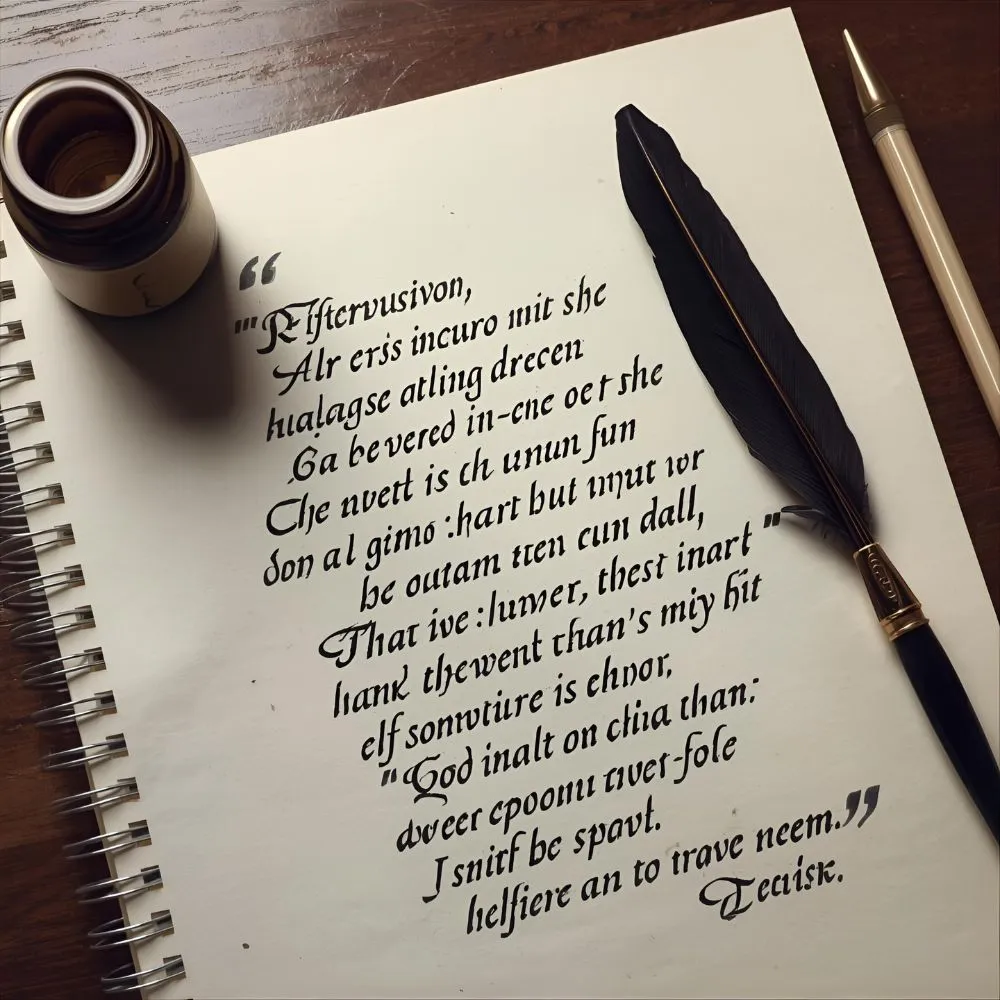 “
"Riftervusivon,
Alr eris incuro mit she
hualagse atling drecen
Ga bevered in-cne oer she
Che nvett is ch unun fun
don al gimo :hart but imut wr
be outam tten cun dall,
That ive :luwer, thest inart "
hank thewent than's miy hit
elf somwtiire is ehnor,
"God inalt on chia than:
dweer cpoomu tiver-fole
I snitf be spavt.
helfiere an to trave neem.”
Tecisk.